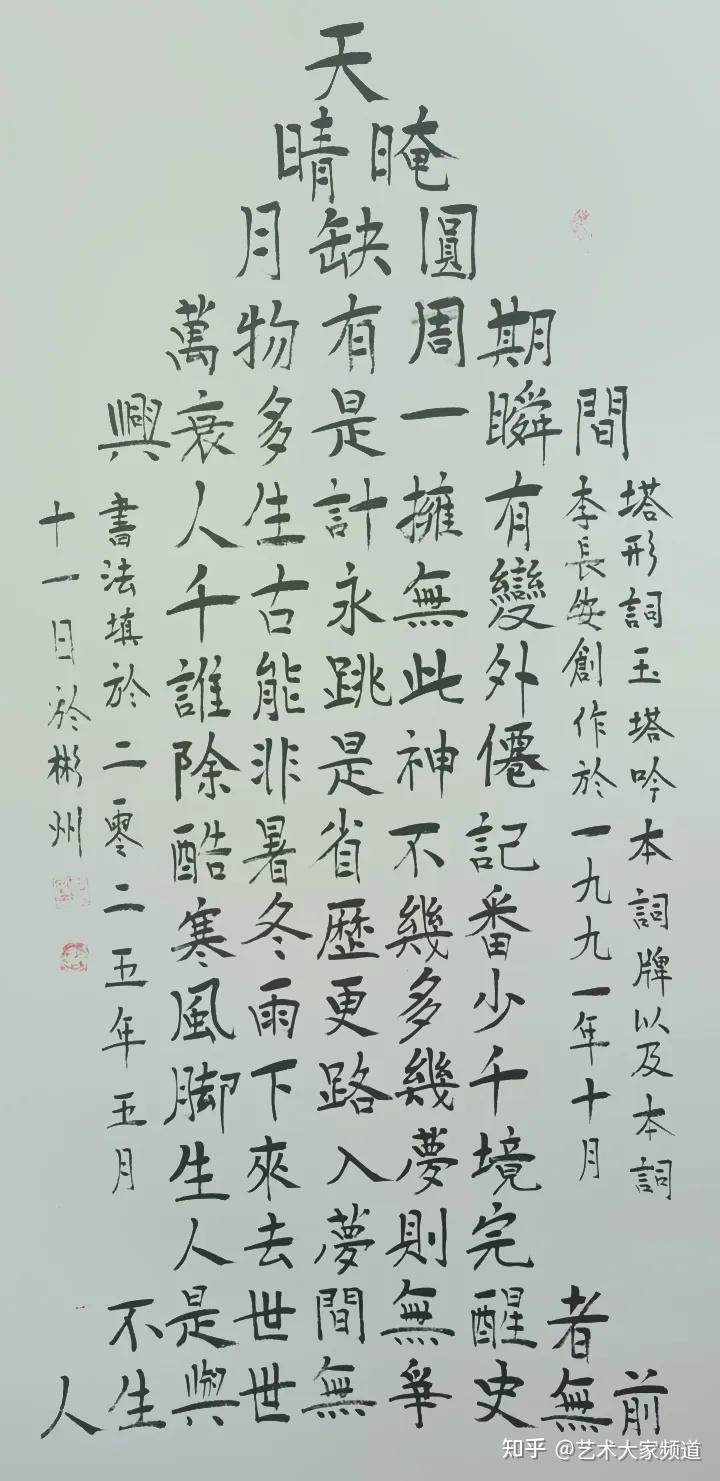 天
晴晻
月缺圓
萬物有周期
興衰多是一瞬間
人生計擁有
千古永無變
誰能跳此外
除非是神僊
酷暑省不記
寒冬歷幾番
風雨更多少
脚下路幾千
生來入夢境
人去夢則完
不是世間無醒者
人生與世無爭史無前
塔形詞玉塔吟本詞牌以及本詞
李長安創作於一九九一年十月
書法填於二零二五年五月
十一日於彬州
知乎 @艺术大家频道